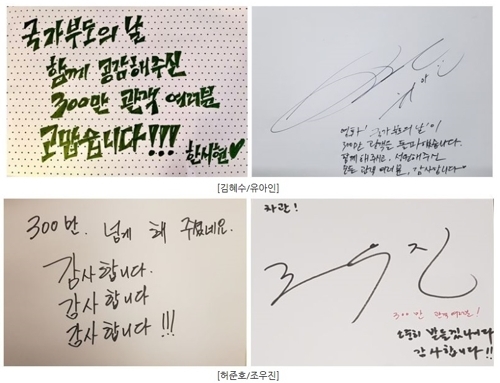 국가부도의 날
함께 공감해주신
300만 관객 여러분
고맙습니다!!!
한시현♥
영화! '국가부도의 날'이
300만 관객을 돌파했습니다.
함께 해주신, 성원해주신
모든 관객 여러분, 감사합니다
[김혜수/유아인]
300만. 넘게 해 주셨네요.
감사합니다.
감사합니다
감사합니다!!!
차관!
조우진
300만 관객 여러분!
소중히 받들겠나이다
감사합니다!!
[허준호/조우진]